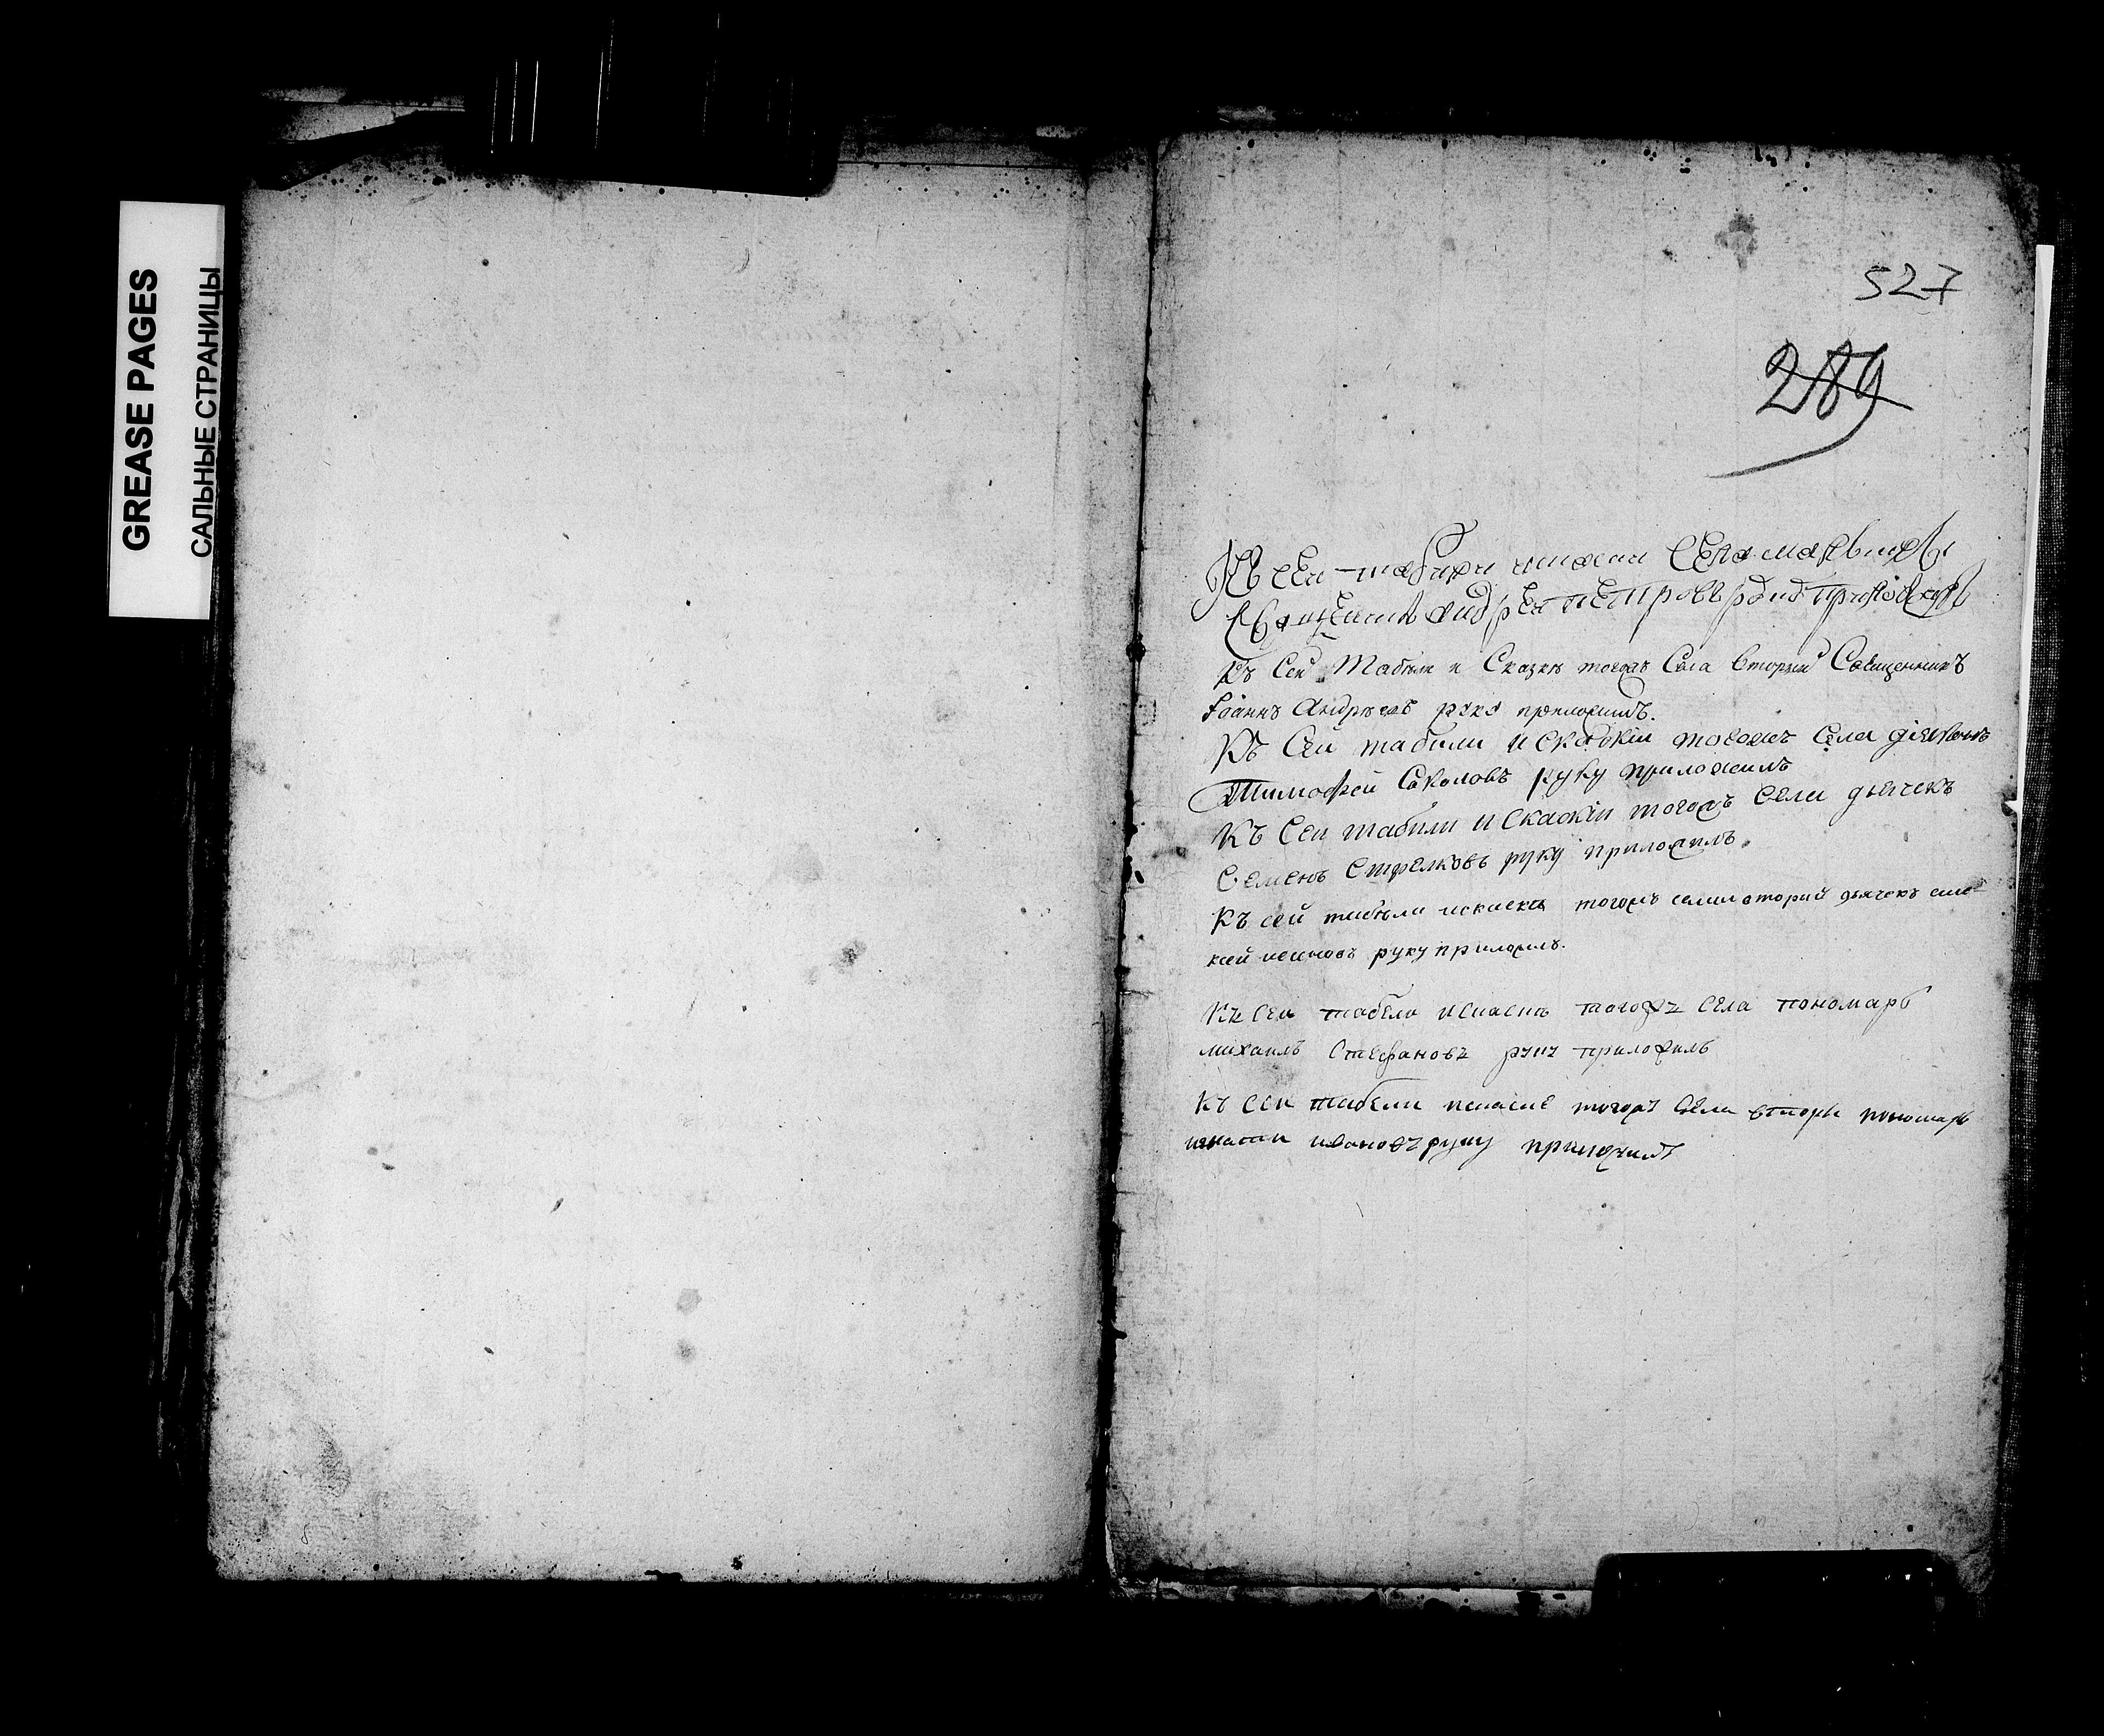 GREASE PAGES
САЛЬНЫЕ СТРАНИЦЫ
527
289
Къ сеи
андреи петровъ руку приложилъ
Къ Сей Табѣли и Сказкѣ тогожъ Села вторый Священникъ
Іоаннъ Андрѣевъ руку приложилъ.
Къ Сей табили и скаскіи тогожъ Села діаконъ
Тимофей Соколовъ руку приложилъ
Къ Сеи табили и скаскіи тогожъ Села дьячекъ
Семенъ Стрелковъ руку приложилъ.
Къ сей табѣли искаски тогожъ села вторий дьячекъ але-
ксей ивановъ руку приложилъ.
Къ сеи табели искаски тогожъ села пономарь
михаилъ Стефановъ руку приложилъ
къ сеи табели искаске тогожъ села вторы пономарь
игнати ивановъ руку приложилъ